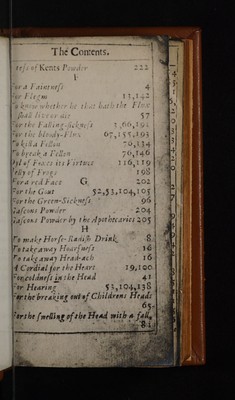 The Contents.
tess of Kents Powder 222
F
For a Faintness 4
For Flegm 13,142
To know whether he that hath the Flux
shall live or die 57
For the Falling-sickness 3,66,191
For the bloody-Flux 67,155,193
To kill a Fellon 70,334
To break a Fellon 76,146
Oyl of Foxes its Vertues 116,119
Jelly of Frogs 198
For a red Face 202
G
For the Gout 52,53,104,105
For the Green-Sickness 96
Gascons Powder 204
Gascons Powder by the Apothecaries 205
H
To make Horse-Radish Drink 8
To take away Hoarsness 16
To take away Head-ach 16
A Cordial for the Heart 19,100
For coldness in the Head 41
For Hearing 53,104,138
For the breaking out of Childrens Heads
65.
For the swelling of the Head with a fall,
81